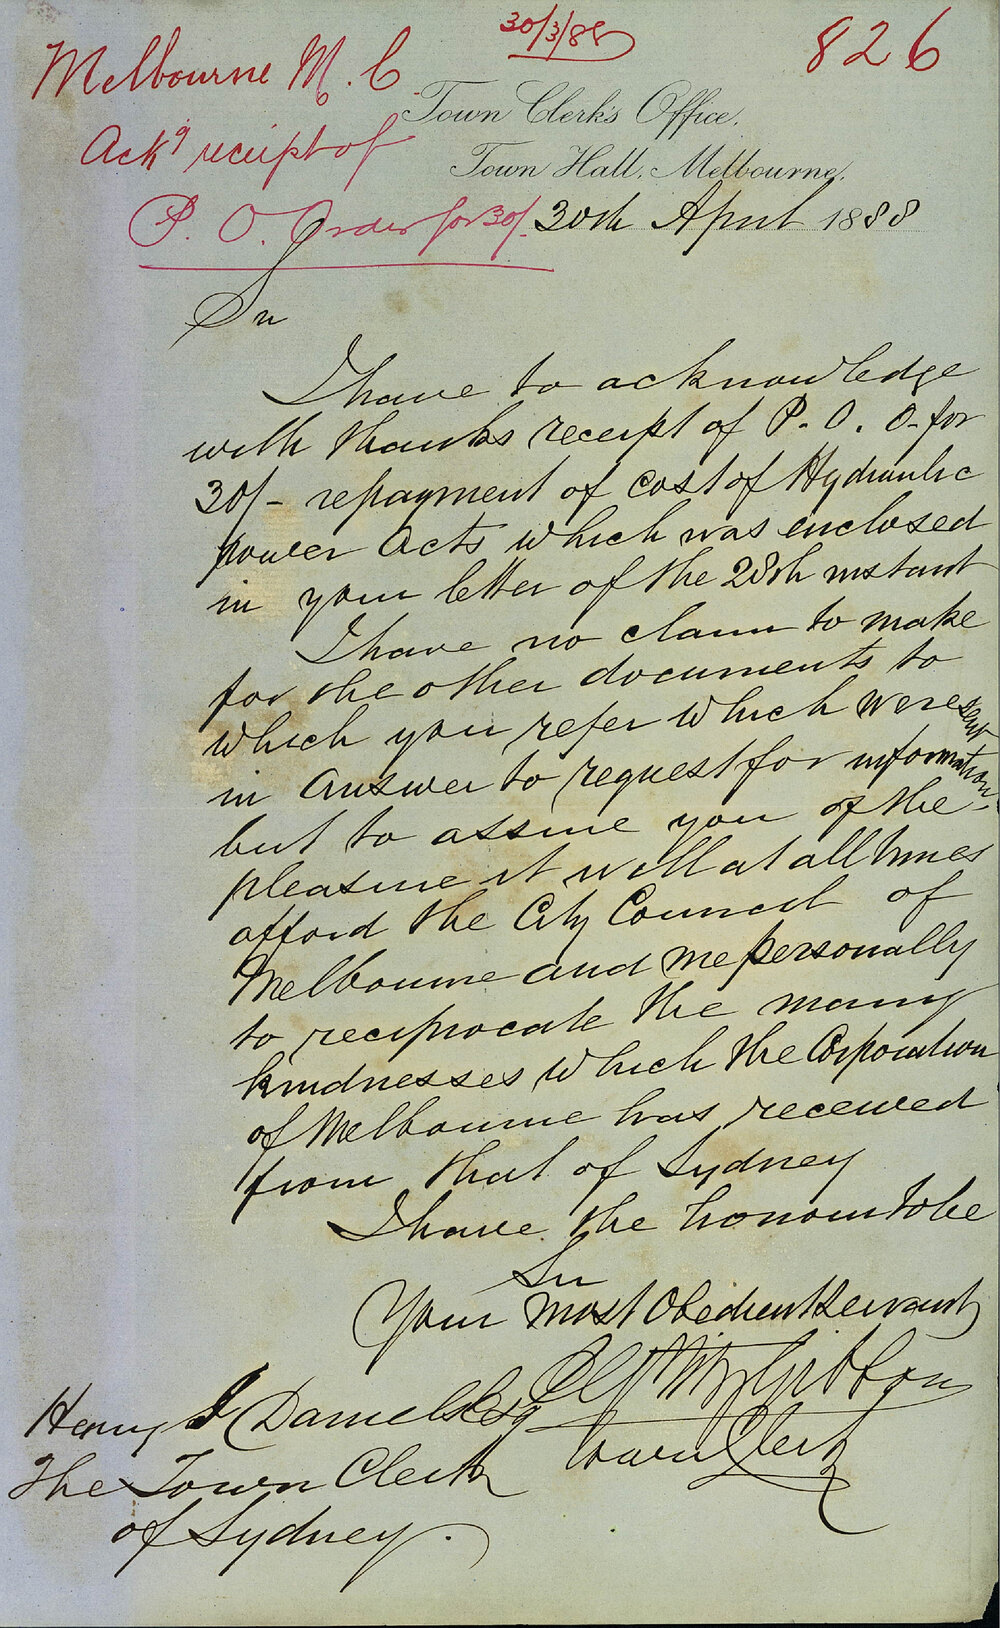 30/3/88
826
Melbourne M. C.
Ackg receipt of
P. O. Order for 30/-
Town Clerk's Office,
Town Hall, Melbourne,
30th April 1888
Sir
I have to acknowledge
with thanks receipt of P. O. O. for
30/- repayment of cost of Hydraulic
power Acts which was enclosed
in your letter of the 28th instant
I have no claim to make
for the other documents to
which you refer which were sent
in answer to request for information,
but to assure you of the
pleasure it will at all times
afford the City Council of
Melbourne and me personally
to reciprocate the many
kindnesses which the Corporation
of Melbourne has received
from that of Sydney
I have the honour to be
Sir
Your most Obedient Servant
FitzGibbon
Town Clerk
Henry J Daniels Esq
The Town Clerk
of Sydney.